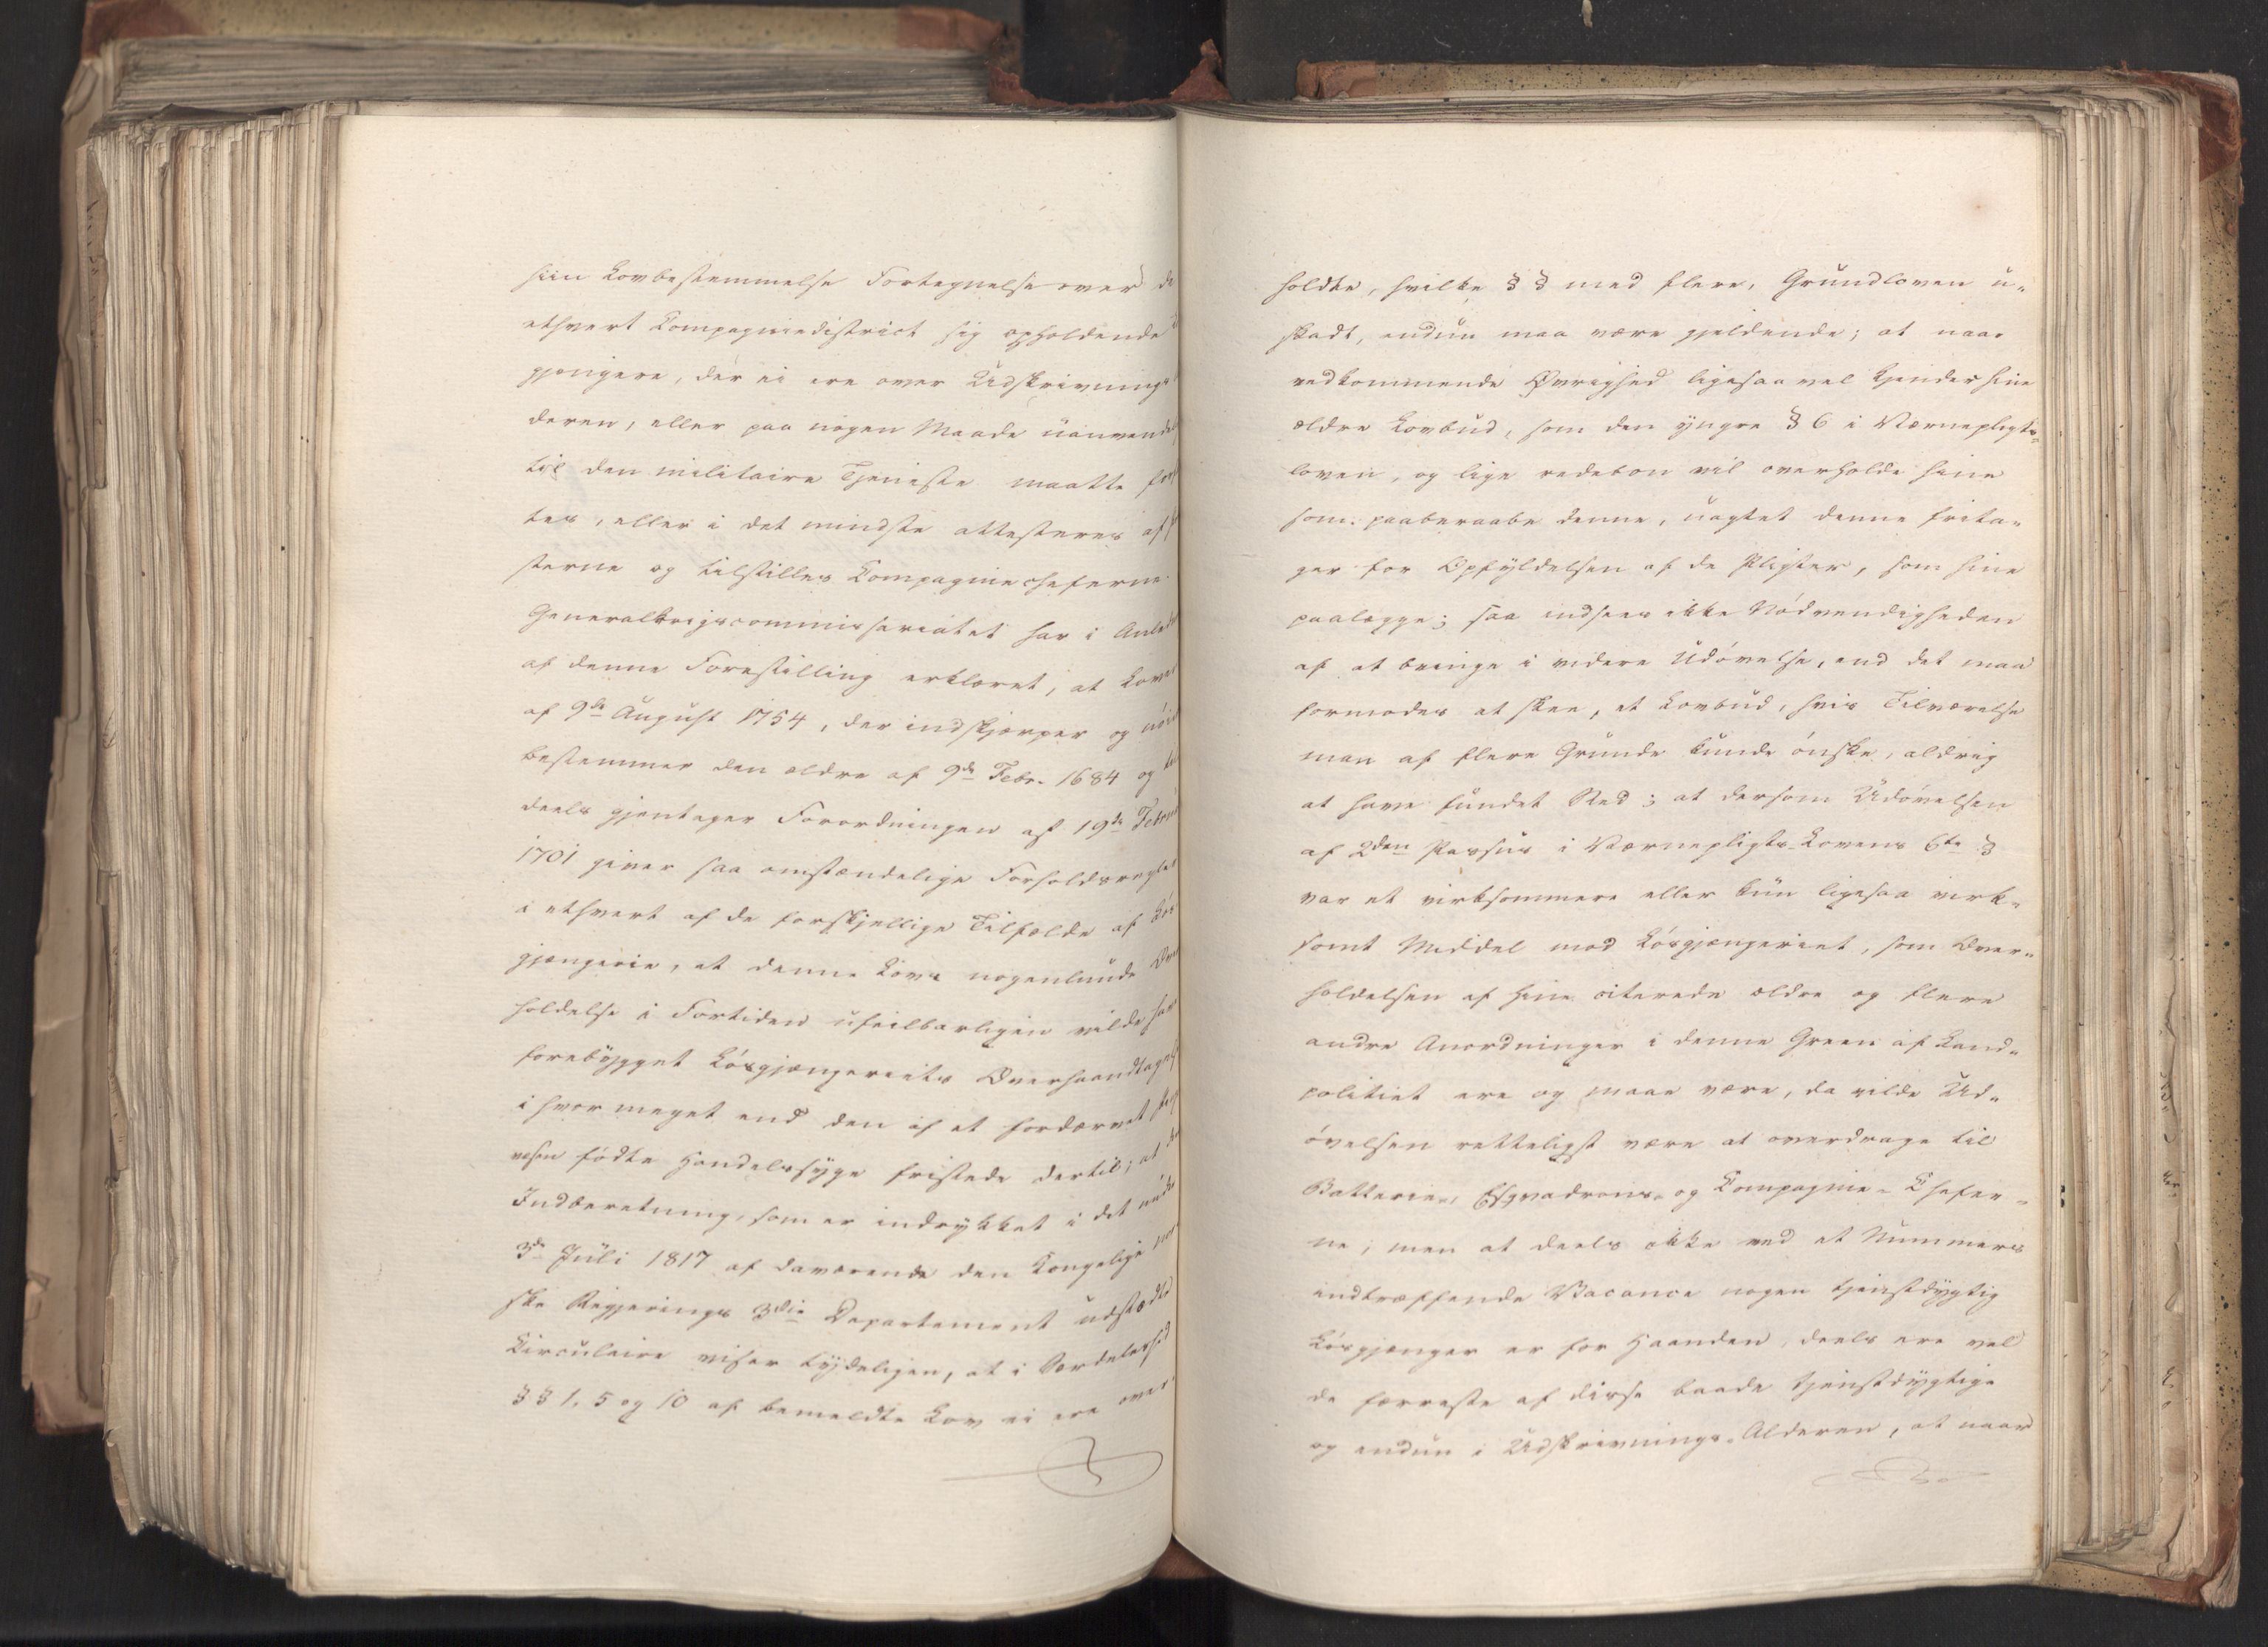 hiin Lovbestemmelse Fortegnelse over de
ethvert Compagniedistrict sig opholdende
gjængere, der ei ere over Udskrivnings
deren, eller paa nogen Maade uanvendel
til den militaire Tjeneste maatte
tes, eller i det mindste attesteres af
sterne og tilstilles Compagniecheferne.
Generalkrigscommissariatet har i Anled
af denne Forestilling erklæret, at Loven
af 9de August 1754, der indskjærper og nöie
bestemmer den ældre af 9de Febr. 1684 og
deels gjentager Forordningen af 19de Febru
1701 giver saa omstændelige Forholdsregler
i ethvert af de forskjellige Tilfælde af Lös
gjængerie, at denne Lovs nogenlunde Over
holdelse i Fortiden ufeilbarligen vilde have
forebygget Lösgjængeriets Overhaandtagelse
i hvor meget end den af et fordærvet
væsen födte Handelssyge fristede dertil; at den
Indberetning, som er indrykket i det under
3de Juli 1817 af daværende den Kongelige nor
ske Regjerings 3die Departement udstædte
Circulaire viser tydeligen, at i Særdeleshed
§§ 1, 5 og 10 af bemeldte Lov ei ere over
holdte, hvilke §§ med flere, Grundloven u-
skadt, endun maa være gjeldende; at naar
vedkommende Øvrighed ligesaa vel kjender hine
ældre Lovbud, som den yngre § 6 i Værnepligts-
loven, og lige redebon vil overholde hine
som paaberaabe denne, uagtet denne frita-
ger for Opfyldelsen af de Pligter, som hine
paalægge; saa indsees ikke Nödvendigheden
af at bringe i videre Udövelse, end det maa
formodes at skee, et Lovbud, hvis Tilværelse
man af flere Grunde kunde önske, aldrig
at have fundet Sted; at dersom Udövelsen
af 2den Passus i Værnepligts-Lovens 6te §
var et virksommere eller kun ligesaa virk-
somt Middel mod Lösgjængeriet, som Over-
holdelsen af hine citerede ældre og flere
andre Anordninger i denne Green af Land-
politiet ere og maae være, da vilde Ud-
övelsen retteligst være at overdrage til
Batterie-, Esqvadrons- og Compagnie-Chefer-
ne; men at deels ikke ved et Nummers
indtræffende Vacance nogen tjenstdygtig
Lösgjænger er for Haanden, deels ere vel
de færreste af disse baade tjenstdygtige
og endun i Udskrivnings-Alderen, at naar